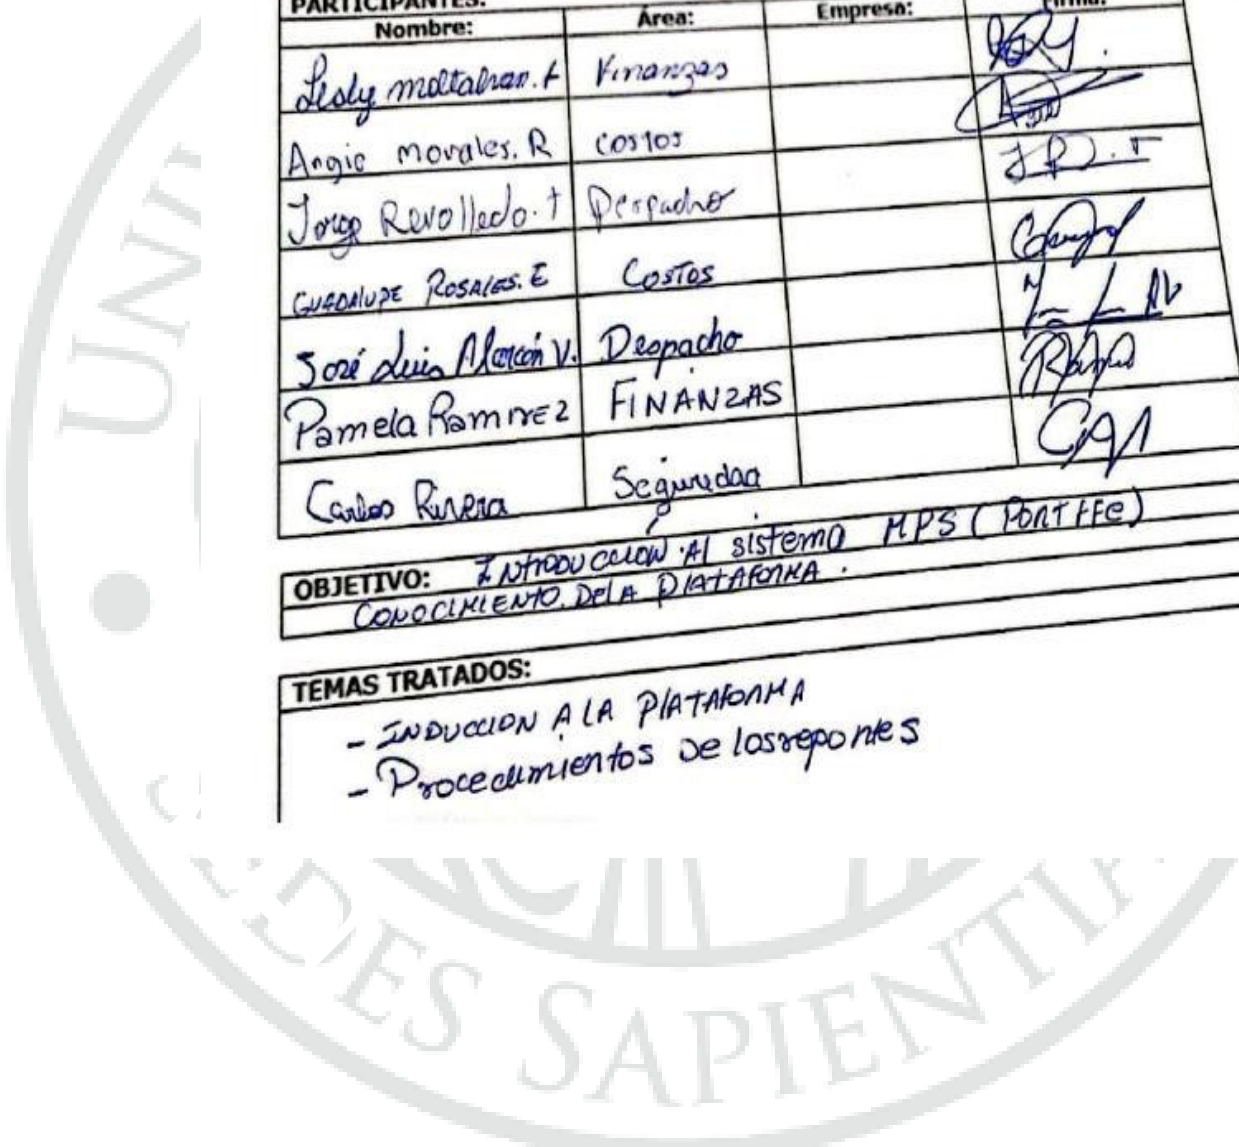 PARTICIPANTES:
Nombre: Área: Empresa: Firma:
Lesly moltalvan. A Finanzas
Angie Morales. R costos
Jorge Revolledo. t Despacho
GUADALUPE ROSALES. E COSTOS
José Luis Alarcón V. Despacho
Pamela Ramirez FINANZAS
Carlos Rivera Seguridad
OBJETIVO: INTRODUCCION AL sistema MPS (PORTFFE)
CONOCIMIENTO DE LA PLATAFORMA.
TEMAS TRATADOS:
- INDUCCION A LA PLATAFORMA
- Procedimientos de los reportes
UNI
SEDES SAPIENTIA